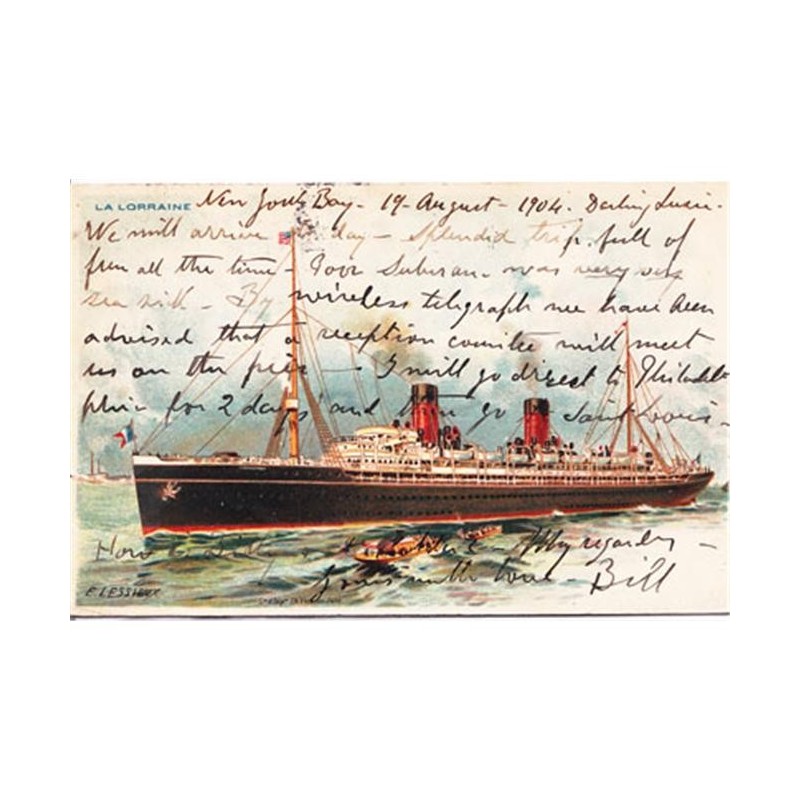 LA LORRAINE New York Bay - 19 August - 1904. Darling Susie.
We will arrive to day - splendid trip. full of
fun all the time - Poor Suburan - was very very
sea sick - By wireless telegraph we have been
advised that a reception comitee will meet
us on the pier - I will go direct to Philadel
phia for 2 days and then go Saint Louis -
How - My regards -
yours with love - Bill
E. LESSIEUX